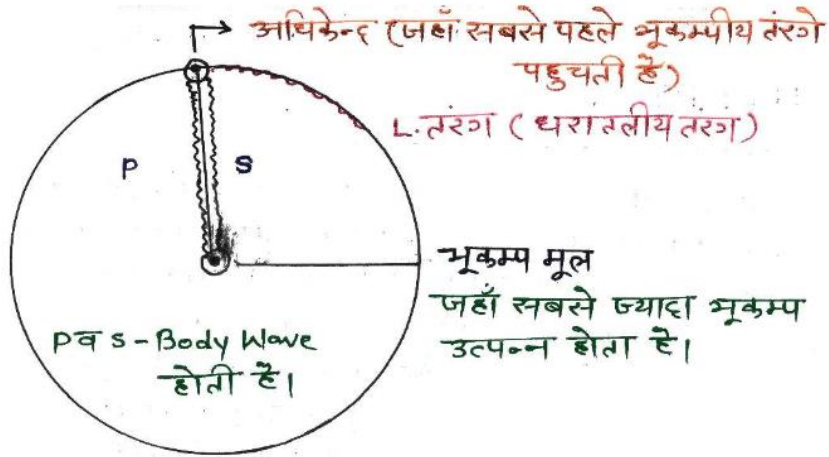 अधिकेन्द (जहाँ सबसे पहले भूकम्पीय तंरगे
पहुचती है)
L. तंरग (धरातलीय तंरग)
P
S
भूकम्प मूल
जहाँ सबसे ज्यादा भूकम्प
उत्पन्न होता है।
P व S - Body Wave
होती है।